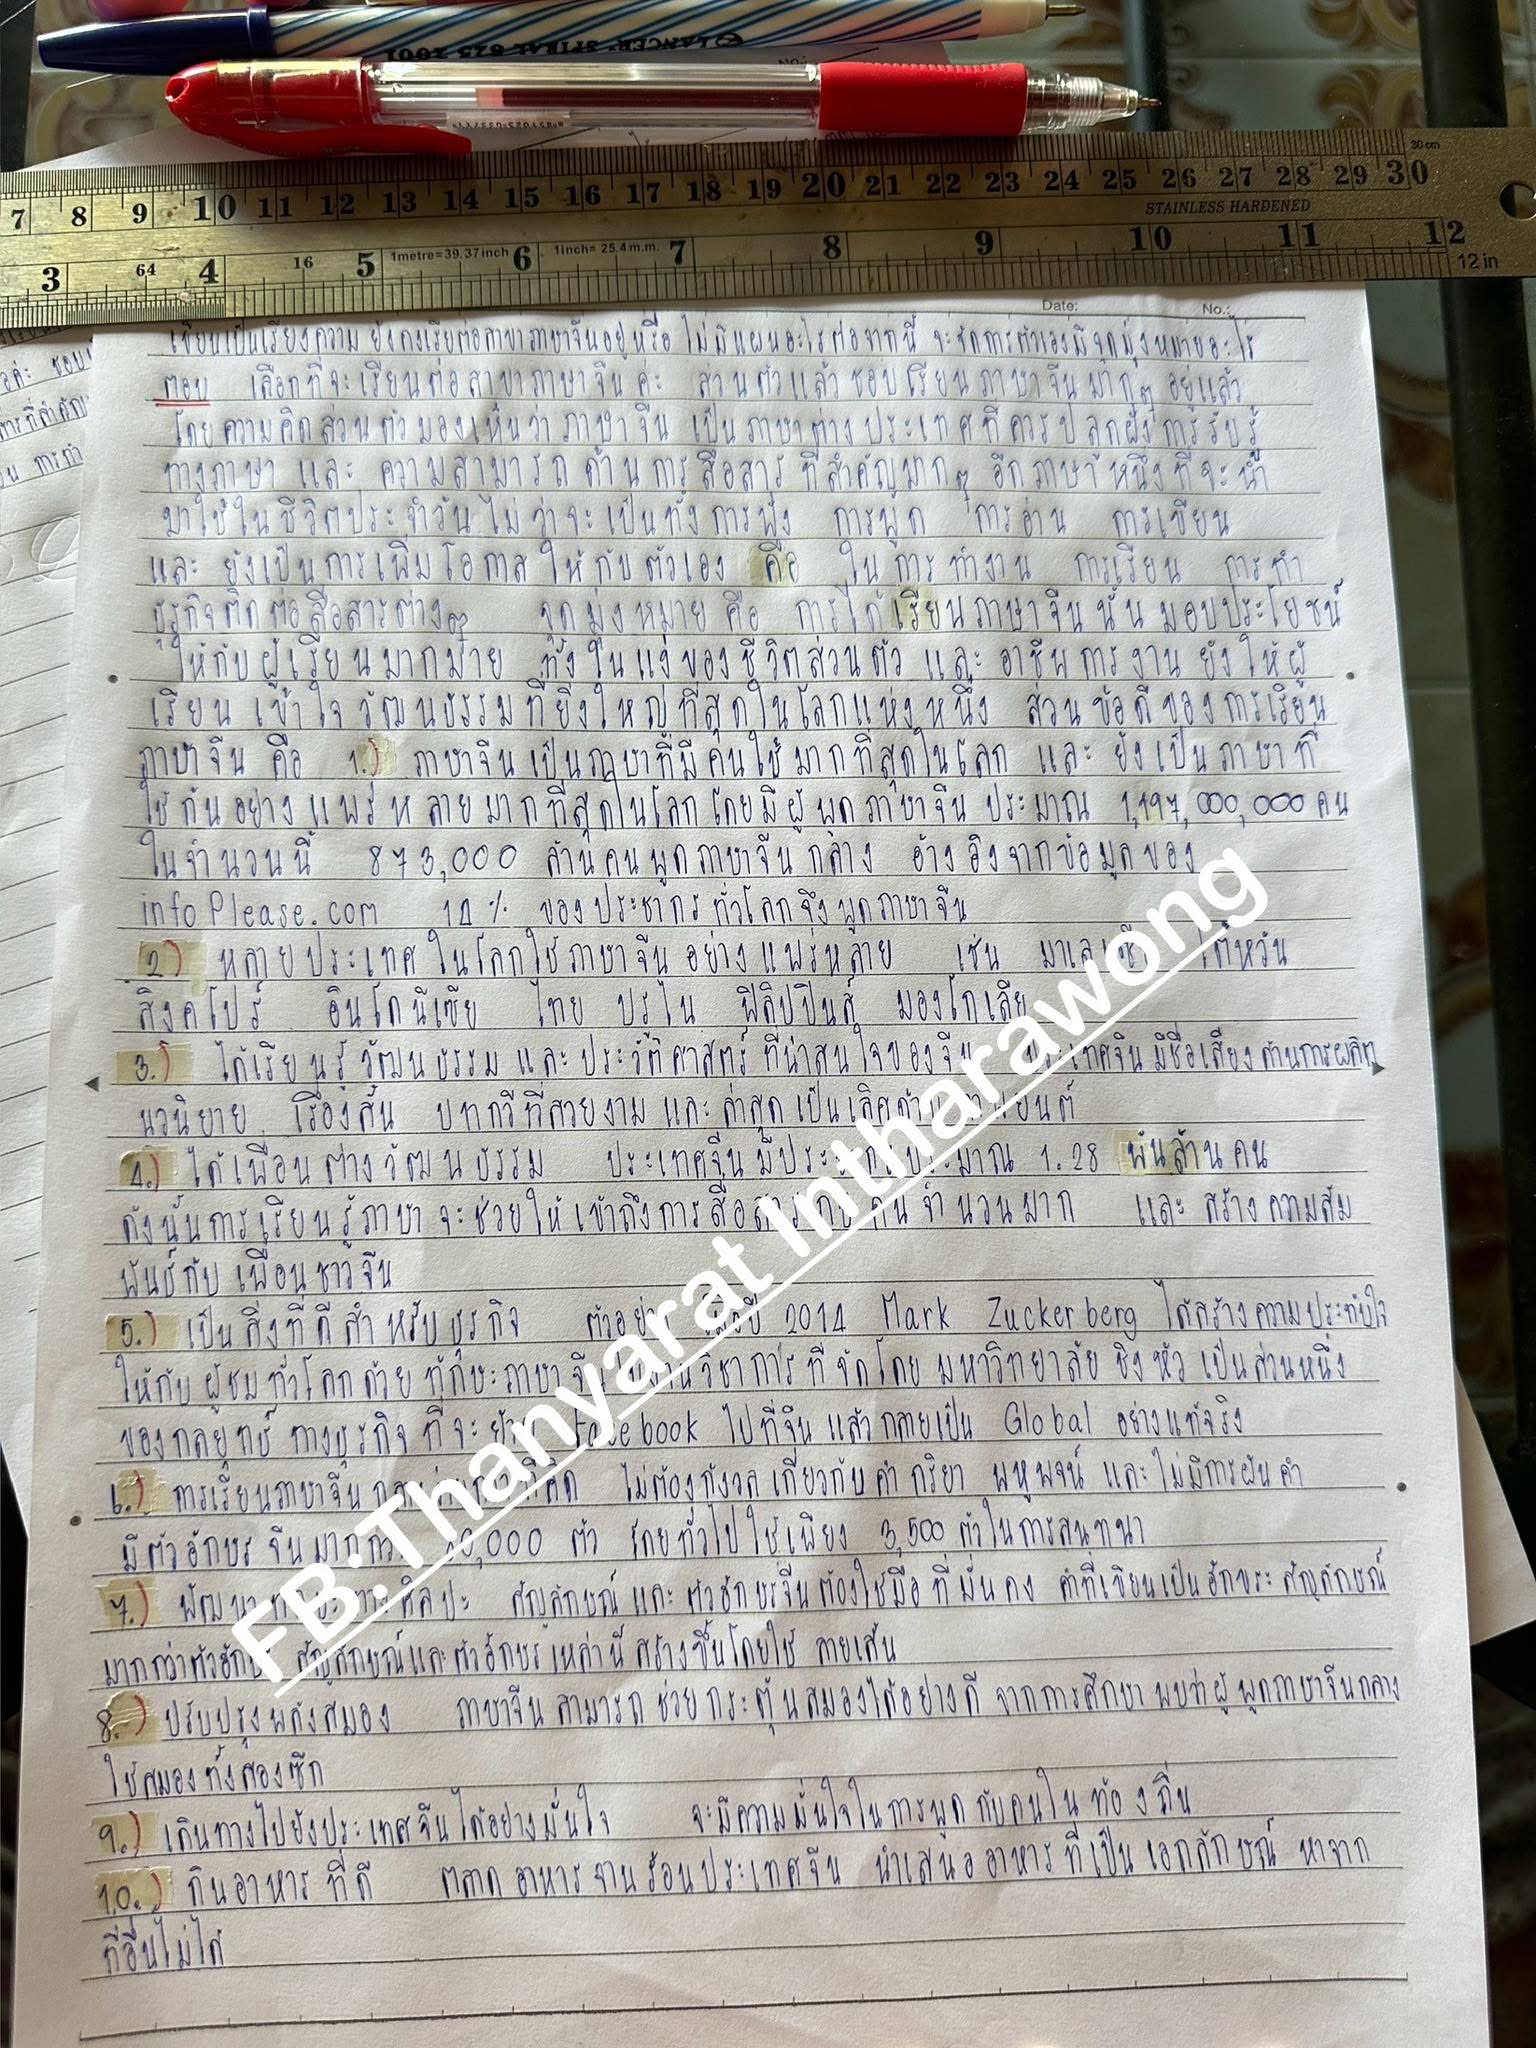 LANCER SPIRAL 825 2001
No.:
7 8 9 10 11 12 13 14 15 16 17 18 19 20 21 22 23 24 25 26 27 28 29 30 30cm
STAINLESS HARDENED
3 64 4 16 5 1metre=39.37inch 6 1inch= 25.4m.m. 7 8 9 10 11 12 12in
Date: No.:
เขียนเป็นเรียงความ ยังคงเรียนต่อสาขาภาษาจีนอยู่หรือ ไม่มีแผนอะไรต่อจากนี้ จะจัดการตัวเองมีจุดมุ่งหมายอะไร
ตอบ เลือกที่จะเรียนต่อสาขาภาษาจีนค่ะ ส่วนตัวแล้วชอบเรียนภาษาจีนมากๆ อยู่แล้ว
โดยความคิดส่วนตัวมองเห็นว่าภาษาจีน เป็นภาษาต่างประเทศที่ควรปลูกฝังการรับรู้
ทางภาษา และ ความสามารถด้านการสื่อสาร ที่สำคัญมากๆ อีกภาษาหนึ่งที่จะนำ
มาใช้ในชีวิตประจำวันไม่ว่าจะเป็นทั้งการฟัง การพูด การอ่าน การเขียน
และ ยังเป็นการเพิ่มโอกาสให้กับตัวเอง คือ ในการทำงาน การเรียน การทำ
ธุรกิจติดต่อสื่อสารต่างๆ จุดมุ่งหมายคือ การได้เรียนภาษาจีนนั้นมอบประโยชน์
ให้กับผู้เรียนมากมาย ทั้งในแง่ของชีวิตส่วนตัว และ อาชีพการงาน ยังให้ผู้
เรียน เข้าใจวัฒนธรรมที่ยิ่งใหญ่ที่สุดในโลกแห่งหนึ่ง ส่วนข้อดีของการเรียน
ภาษาจีน คือ 1.) ภาษาจีนเป็นภาษาที่มีคนใช้มากที่สุดในโลก และ ยังเป็นภาษาที่
ใช้กันอย่างแพร่หลายมากที่สุดในโลกโดยมีผู้พูดภาษาจีน ประมาณ 1,197,000,000 คน
ในจำนวนนี้ 873,000 ล้านคนพูดภาษาจีนกลาง อ้างอิงจากข้อมูลของ
infoPlease.com 14% ของประชากรทั่วโลกจึงพูดภาษาจีน
2) หลายประเทศในโลกใช้ภาษาจีนอย่างแพร่หลาย เช่น มาเลเซีย ไต้หวัน
สิงคโปร์ อินโดนีเซีย ไทย บรูไน ฟิลิปปินส์ มองโกเลีย
3.) ได้เรียนรู้วัฒนธรรมและประวัติศาสตร์ที่น่าสนใจของจีน ประเทศจีนมีชื่อเสียงด้านการผลิต
นวนิยาย เรื่องสั้น บทกวีที่สวยงาม และ ล่าสุดเป็นเลิศด้านภาพยนต์
4.) ได้เพื่อนต่างวัฒนธรรม ประเทศจีนมีประชากรประมาณ 1.28 พันล้านคน
ดังนั้นการเรียนรู้ภาษาจะช่วยให้เข้าถึงการสื่อสารกับคนจำนวนมาก และ สร้างความสัม
พันธ์กับเพื่อนชาวจีน
5.) เป็นสิ่งที่ดีสำหรับธุรกิจ ตัวอย่าง เมื่อปี 2014 Mark Zuckerberg ได้สร้างความประทับใจ
ให้กับผู้ชมทั่วโลกด้วยทักษะภาษาจีนในงานวิชาการที่จัดโดยมหาวิทยาลัยชิงหัวเป็นส่วนหนึ่ง
ของกลยุทธ์ทางธุรกิจที่จะย้าย Facebook ไปที่จีนแล้วกลายเป็น Global อย่างแท้จริง
6.) การเรียนภาษาจีน ที่คิด ไม่ต้องกังวลเกี่ยวกับคำ กริยา พหูพจน์ และ ไม่มีการผันคำ
มีตัวอักษรจีนมากกว่า ตัว โดยทั่วไปใช้เพียง 3,500 ตัวในการสนทนา
7.) พัฒนาทักษะทางศิลปะ สัญลักษณ์ และ ตัวอักษรจีนต้องใช้มือที่มั่นคง คำที่เขียนเป็นอักขระ สัญลักษณ์
มากกว่าตัวอักษร สัญลักษณ์และตัวอักษรเหล่านี้ สร้างขึ้นโดยใช้ ลายเส้น
8.) ปรับปรุงพลังสมอง ภาษาจีนสามารถช่วยกระตุ้นสมองได้อย่างดี จากการศึกษาพบว่าผู้พูดภาษาจีนกลาง
ใช้สมองทั้งสองซีก
9.) เดินทางไปยังประเทศจีนได้อย่างมั่นใจ จะมีความมั่นใจในการพูดกับคนในท้องถิ่น
10.) กินอาหารที่ดี ตลาดอาหารจานร้อนประเทศจีน นำเสนออาหารที่เป็นเอกลักษณ์ หาจาก
ที่อื่นไม่ได้
FB:Thanyarat Intharawong